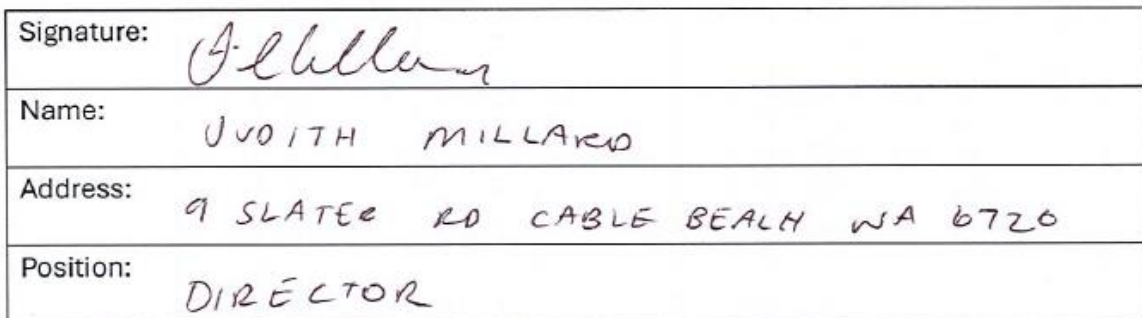 Signature:
Name: JUDITH MILLARD
Address: 9 SLATER RD CABLE BEACH WA 6726
Position: DIRECTOR